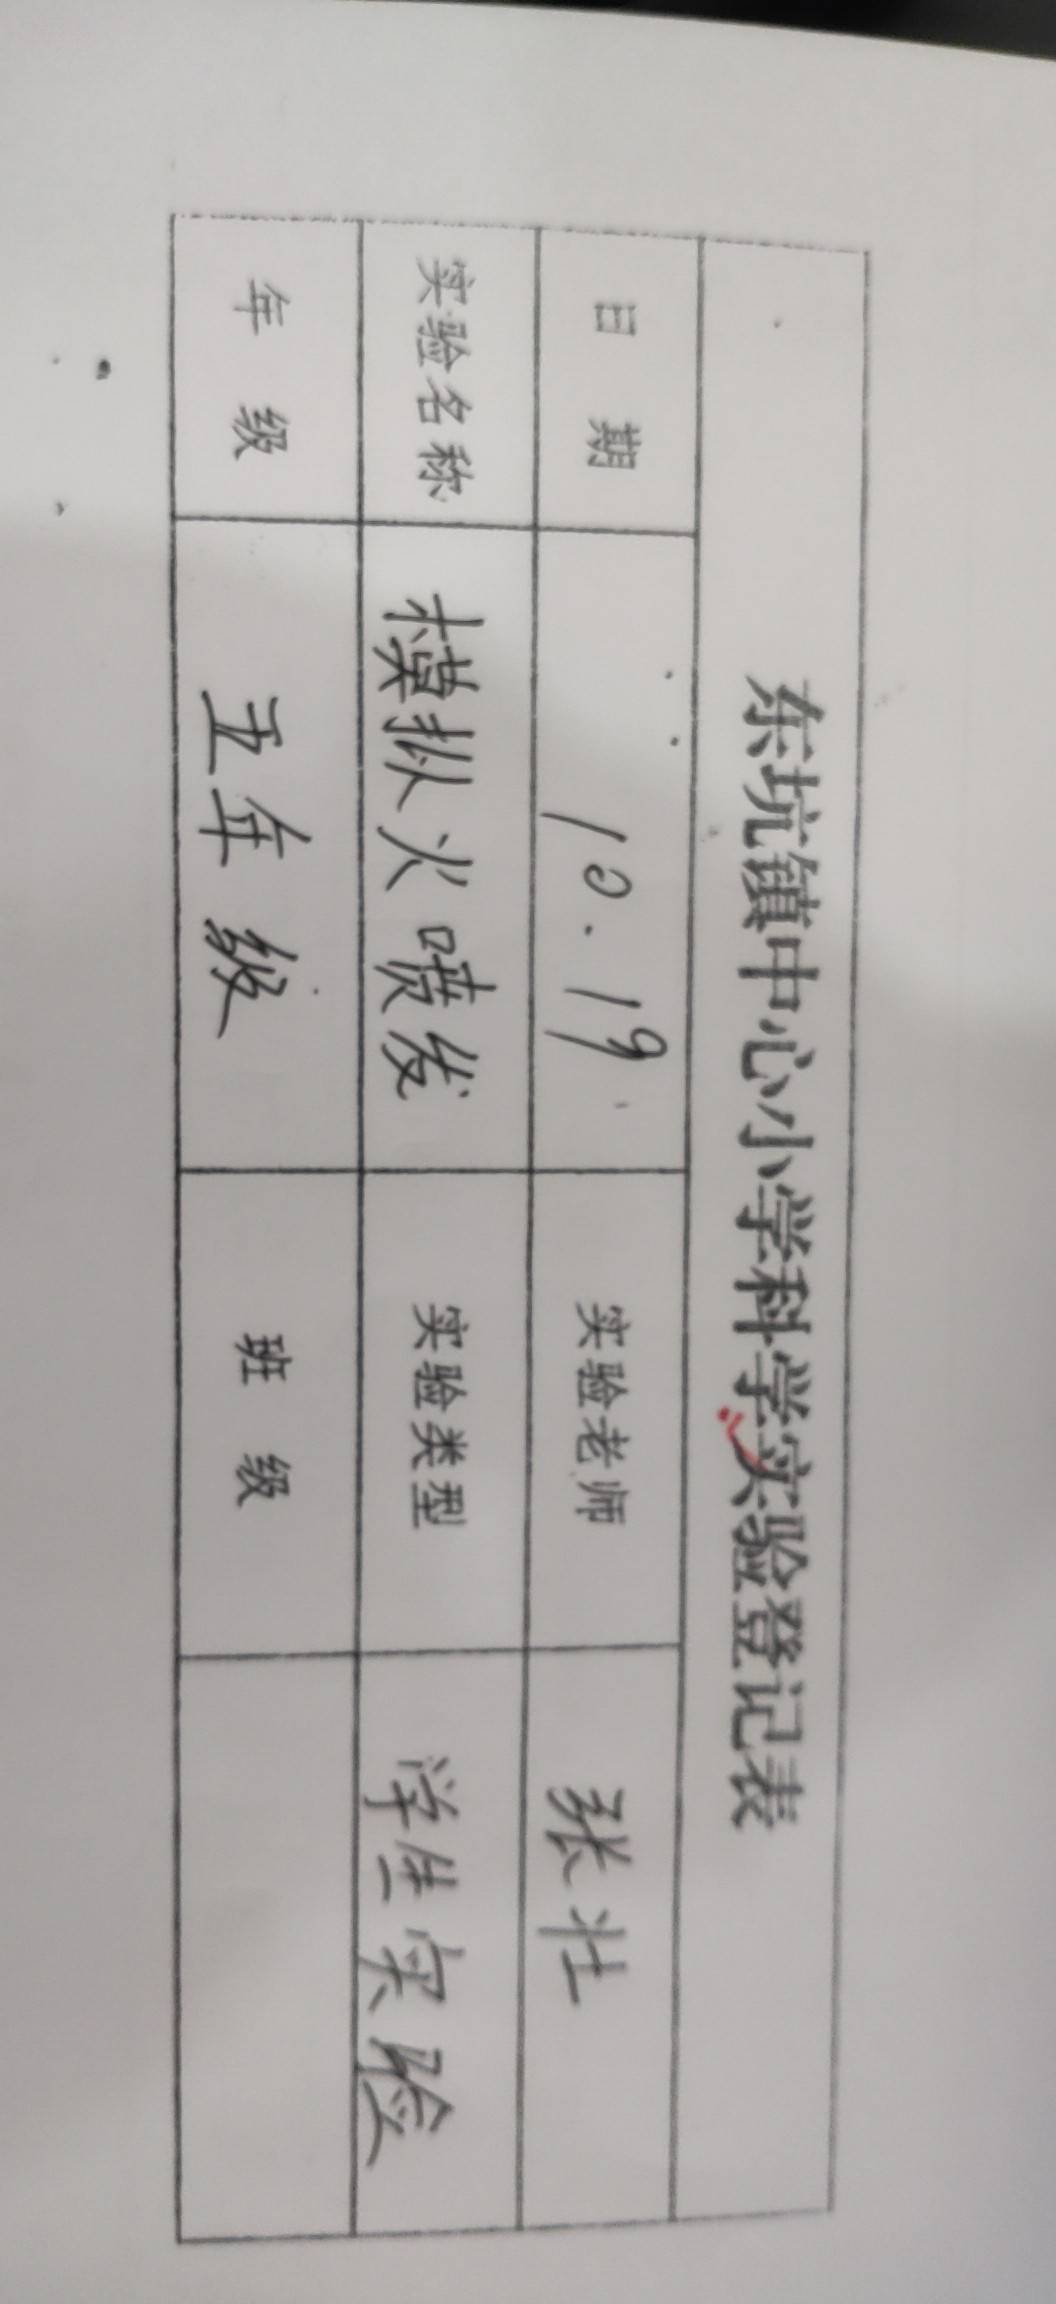 东坑镇中心小学科学实验登记表
日 期 10.19 实验老师 张壮
实验名称 模拟火喷发 实验类型 学生实验
年 级 五年级 班 级